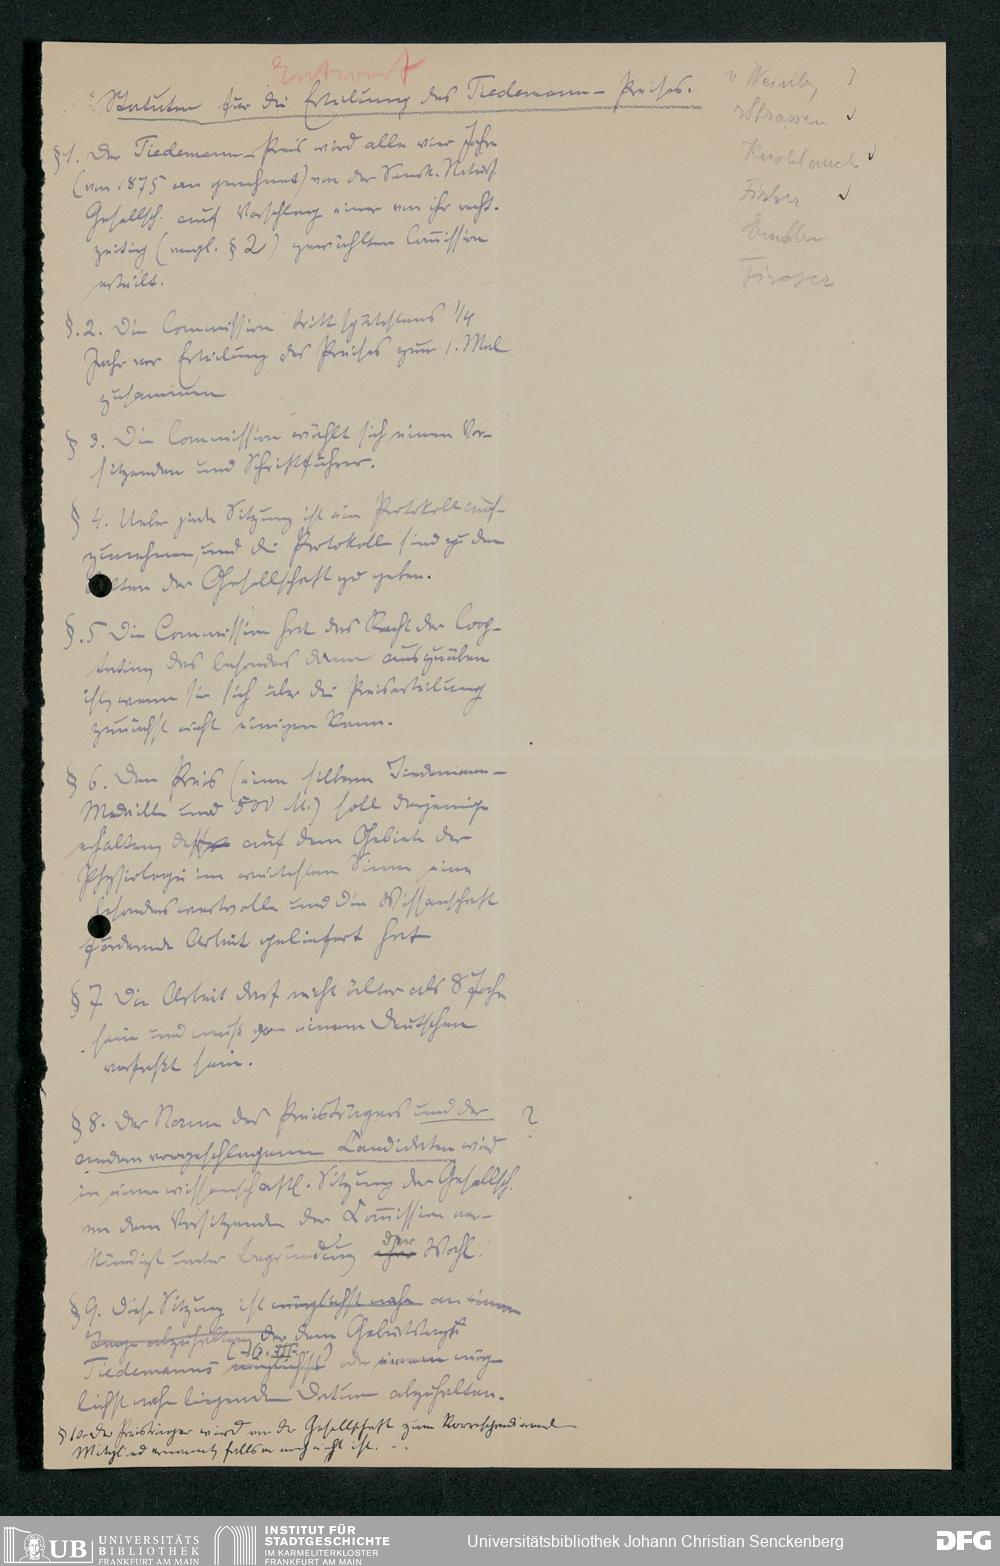 Entwurf
Statuten für die Erteilung des Tiedemann-Preises.
§ 1. Der Tiedemann-Preis wird alle vier Jahre
(von 1875 an gerechnet) von der Senck. Naturf.
Gesellsch. auf Vorschlag einer von ihr recht-
zeitig (vergl. § 2) gewählten Com̅ission
erteilt.
§. 2. Die Commission tritt spätestens 1/4
Jahr vor Erteilung des Preises zum 1. Mal
zusammen
§ 3. Die Commission wählt sich einen Vor-
sitzenden und Schriftführer.
§ 4. Ueber jede Sitzung ist ein Protokoll auf-
zunehmen, und die Protokolle sind zu den
Akten der Gesellschaft zu geben.
§. 5 Die Commission hat das Recht der Coop-
tation, das besonders dann auszuüben
ist, wenn sie sich über die Preiserteilung
zunächst nicht einigen kann.
§ 6. Den Preis (eine silberne Tiedemann-
Medaille und 500 M.) soll derjenige
erhalten, der auf dem Gebiete der
Physiologie im weitesten Sinne eine
besonders wertvolle und die Wissenschaft
fördernde Arbeit geliefert hat
§ 7. Die Arbeit darf nicht älter als 8 Jahre
sein und muß von einem Deutschen
verfaßt sein.
§ 8. Der Name des Preisträgers und der
andern vorgeschlagenen Candidaten wird
in einer wissenschaftl. Sitzung der Gesellsch.
von dem Vorsitzenden der Com̅ission ver-
kündigt unter Begründung der Wahl.
?
§ 9. Diese Sitzung ist möglichst nahe an einem
Tage abzuhalten der dem Geburtstage
Tiedemanns möglichst oder einem mög-
lichst nahe liegenden Datum abzuhalten.
§ 10. Der Preisträger wird von der Gesellschaft zum Korrespondierend
Mitglied ernannt, falls er noch nicht ist.
v Weinb,
Strassen
Knoblauch
Fischer
Fischer
UB UNIVERSITÄTS
BIBLIOTHEK
FRANKFURT AM MAIN
INSTITUT FÜR
STADTGESCHICHTE
IM KARMELITERKLOSTER
FRANKFURT AM MAIN
Universitätsbibliothek Johann Christian Senckenberg
DFG